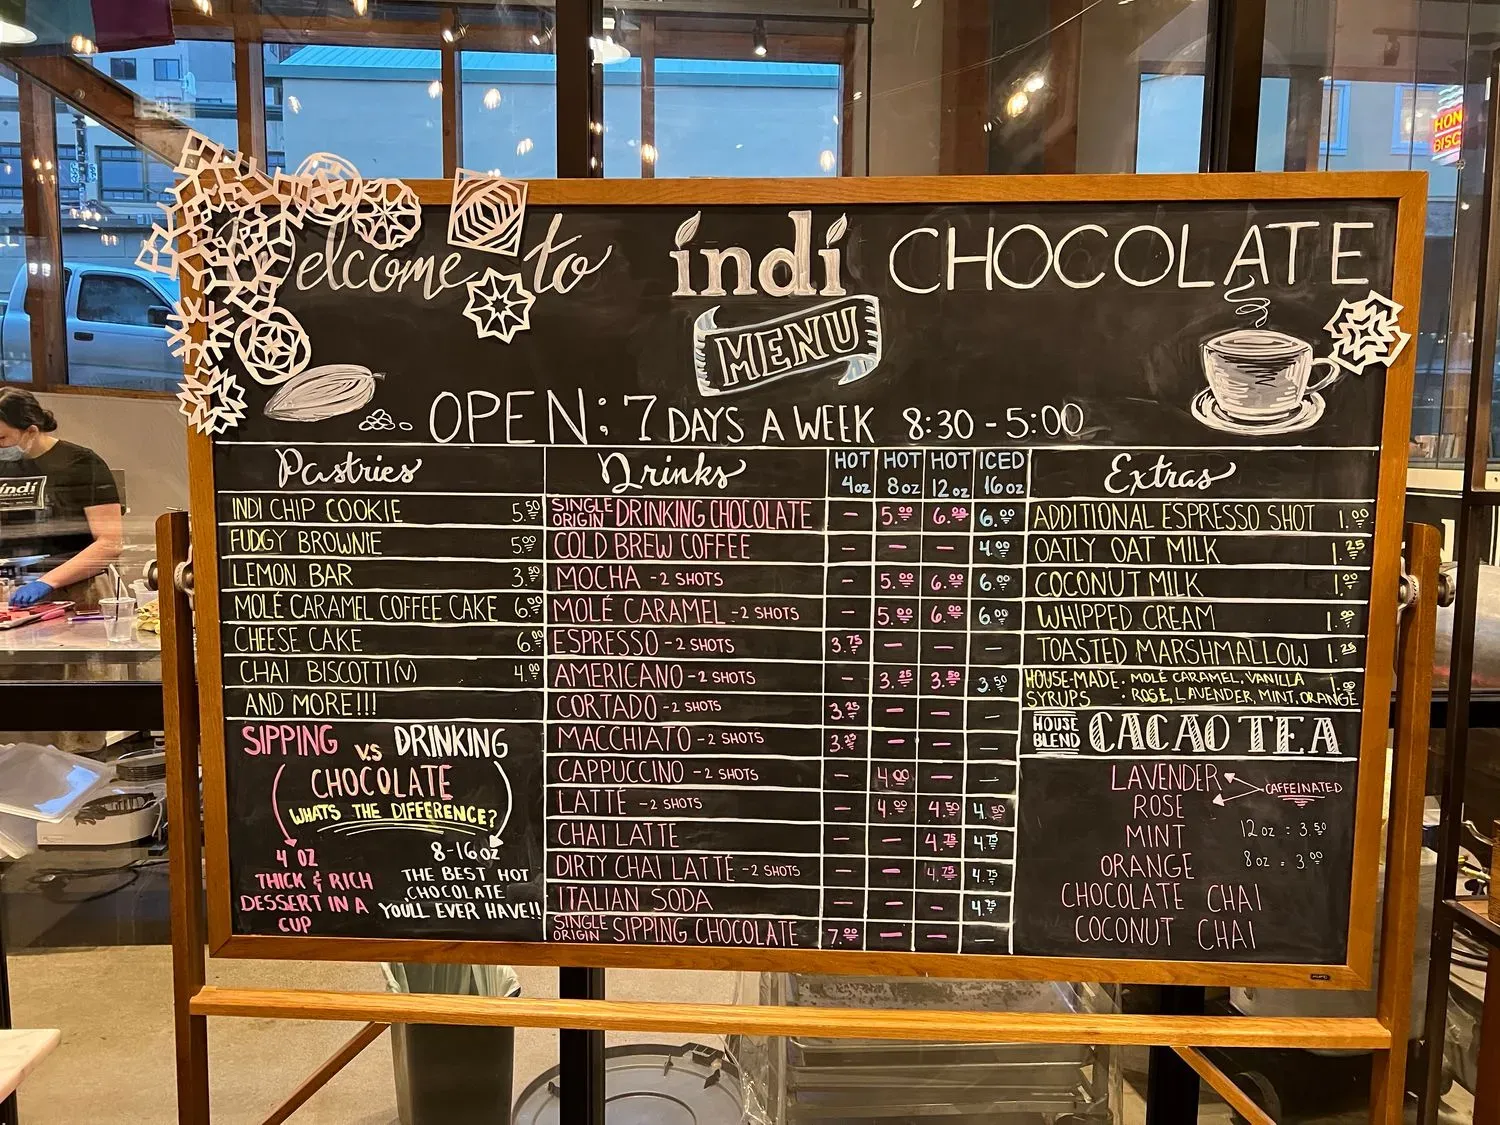 Welcome to indi CHOCOLATE
MENU
OPEN: 7 DAYS A WEEK 8:30 - 5:00
Pastries
INDI CHIP COOKIE 5.50
FUDGY BROWNIE 5.00
LEMON BAR 3.50
MOLÉ CARAMEL COFFEE CAKE 6.00
CHEESE CAKE 6.00
CHAI BISCOTTI(V) 4.00
AND MORE!!!
SIPPING V.S DRINKING
CHOCOLATE
WHATS THE DIFFERENCE?
4 OZ
THICK & RICH
DESSERT IN A
CUP
8-16 oz
THE BEST HOT
CHOCOLATE
YOU'LL EVER HAVE!!
Drinks HOT 4oz HOT 8oz HOT 12oz ICED 16oz
SINGLE ORIGIN DRINKING CHOCOLATE - 5.00 6.00 6.00
COLD BREW COFFEE - - - 4.00
MOCHA - 2 SHOTS - 5.00 6.00 6.00
MOLÉ CARAMEL - 2 SHOTS - 5.00 6.00 6.00
ESPRESSO - 2 SHOTS 3.75 - - -
AMERICANO - 2 SHOTS - 3.25 3.50 3.50
CORTADO - 2 SHOTS 3.25 - - -
MACCHIATO - 2 SHOTS 3.25 - - -
CAPPUCCINO - 2 SHOTS - 4.00 - -
LATTÉ - 2 SHOTS - 4.00 4.50 4.50
CHAI LATTE - - 4.75 4.75
DIRTY CHAI LATTÉ - 2 SHOTS - - 4.75 4.75
ITALIAN SODA - - - 4.75
SINGLE ORIGIN SIPPING CHOCOLATE 7.00 - - -
Extras
ADDITIONAL ESPRESSO SHOT 1.00
OATLY OAT MILK 1.25
COCONUT MILK 1.00
WHIPPED CREAM 1.00
TOASTED MARSHMALLOW 1.25
HOUSE-MADE SYRUPS: MOLÉ CARAMEL, VANILLA
ROSE, LAVENDER, MINT, ORANGE 1.00
HOUSE BLEND CACAO TEA
LAVENDER
ROSE
CAFFEINATED
MINT
ORANGE
CHOCOLATE CHAI
COCONUT CHAI
12 oz = 3.50
8 oz = 3.00
indi
HON